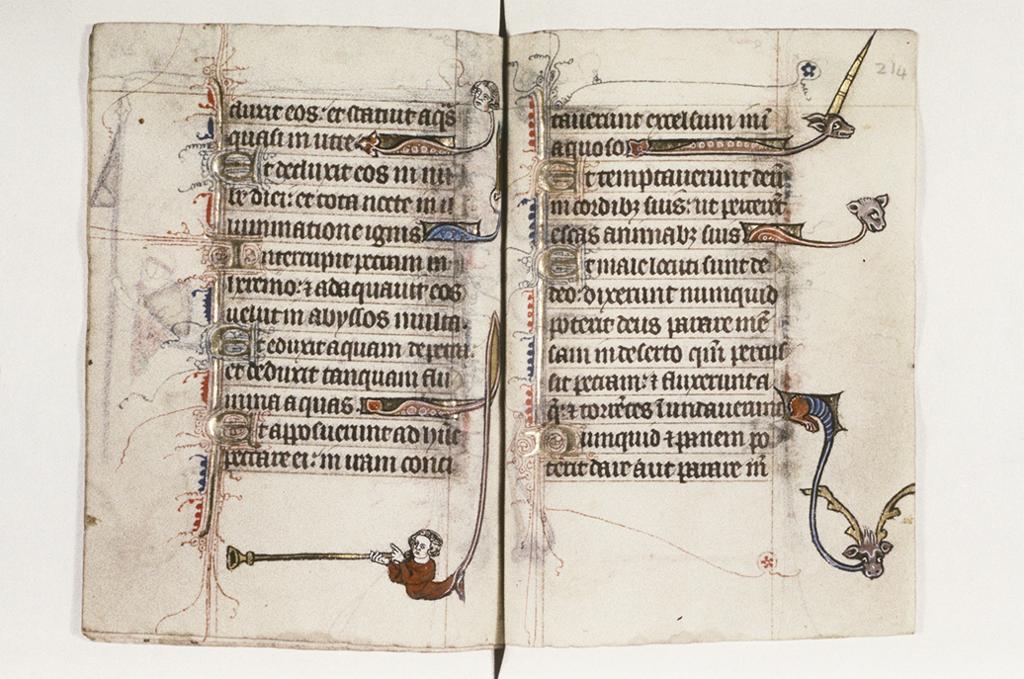 duxit eos: et statuit aq̄s
quasi in utre
Et deduxit eos in nu
be diei: et tota nocte in il
luminatione ignis
Interrupit petram in
heremo: ⁊ adaquauit eos
uelut in abyssos multa.
Et eduxit aquam de petra.
et deduxit tanquam flu
mina aquas.
Et apposuerunt ad huc
peccare ei: in iram conci
214
tauerunt excelsum in ī
aquoso
Et temptauerunt deū
in cordibꝫ suis: ut peterēt
escas animabꝫ suis
Et male locuti sunt de
deo: dixerunt nunquid
poterit deus parare mē
sam in deserto qm̄ percus
sit petram: ⁊ fluxerunt a
q̄: ⁊ torrētes īundauerunt
Nunquid ⁊ panem po
terit dare aut parare m̄